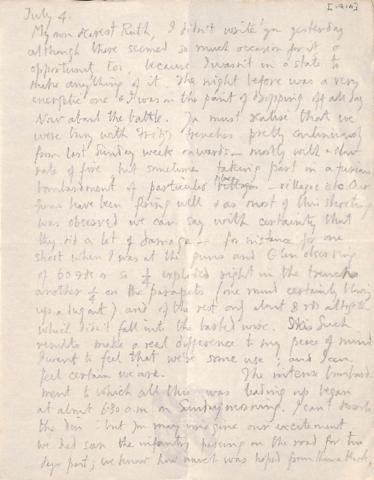 July 4. [1916]
My own dearest Ruth, I didn't write you yesterday
although there seemed so much occasion for it &
opportunity too because I wasn't in a state to
make anything of it. The night before was a very
energetic one & I was on the point of dropping off all day
Now about the battle. You must realise that we
were busy with Fritz's trenches pretty continuously
from last Sunday week onwards – mostly with a slow
rate of fire but sometimes taking part in a furious
bombardment of particular places – villages etc. Our
guns have been firing well & as most of this shooting
was observed we can say with certainty that
they did a lot of damage – for instance for one
shoot when I was at the guns and Glen observing
of 60 rds or so ¼ exploded right in the trench
another ¼ on the parapets (one mind certainly blowing
up a dugout) and of the rest only about 8 rds altogether
which didn't fall into the barbed wire. Such
results make a real difference to my peace of mind
I want to feel that we're some use; and I can
feel certain we are. The intense bombard-
ment to which all this was leading up began
at about 6.30 a.m. on Saturday morning. I can't describe
the din: but you may imagine our excitement
we had seen the infantry passing on the road for two
days past; we knew how much was hoped from this attack,